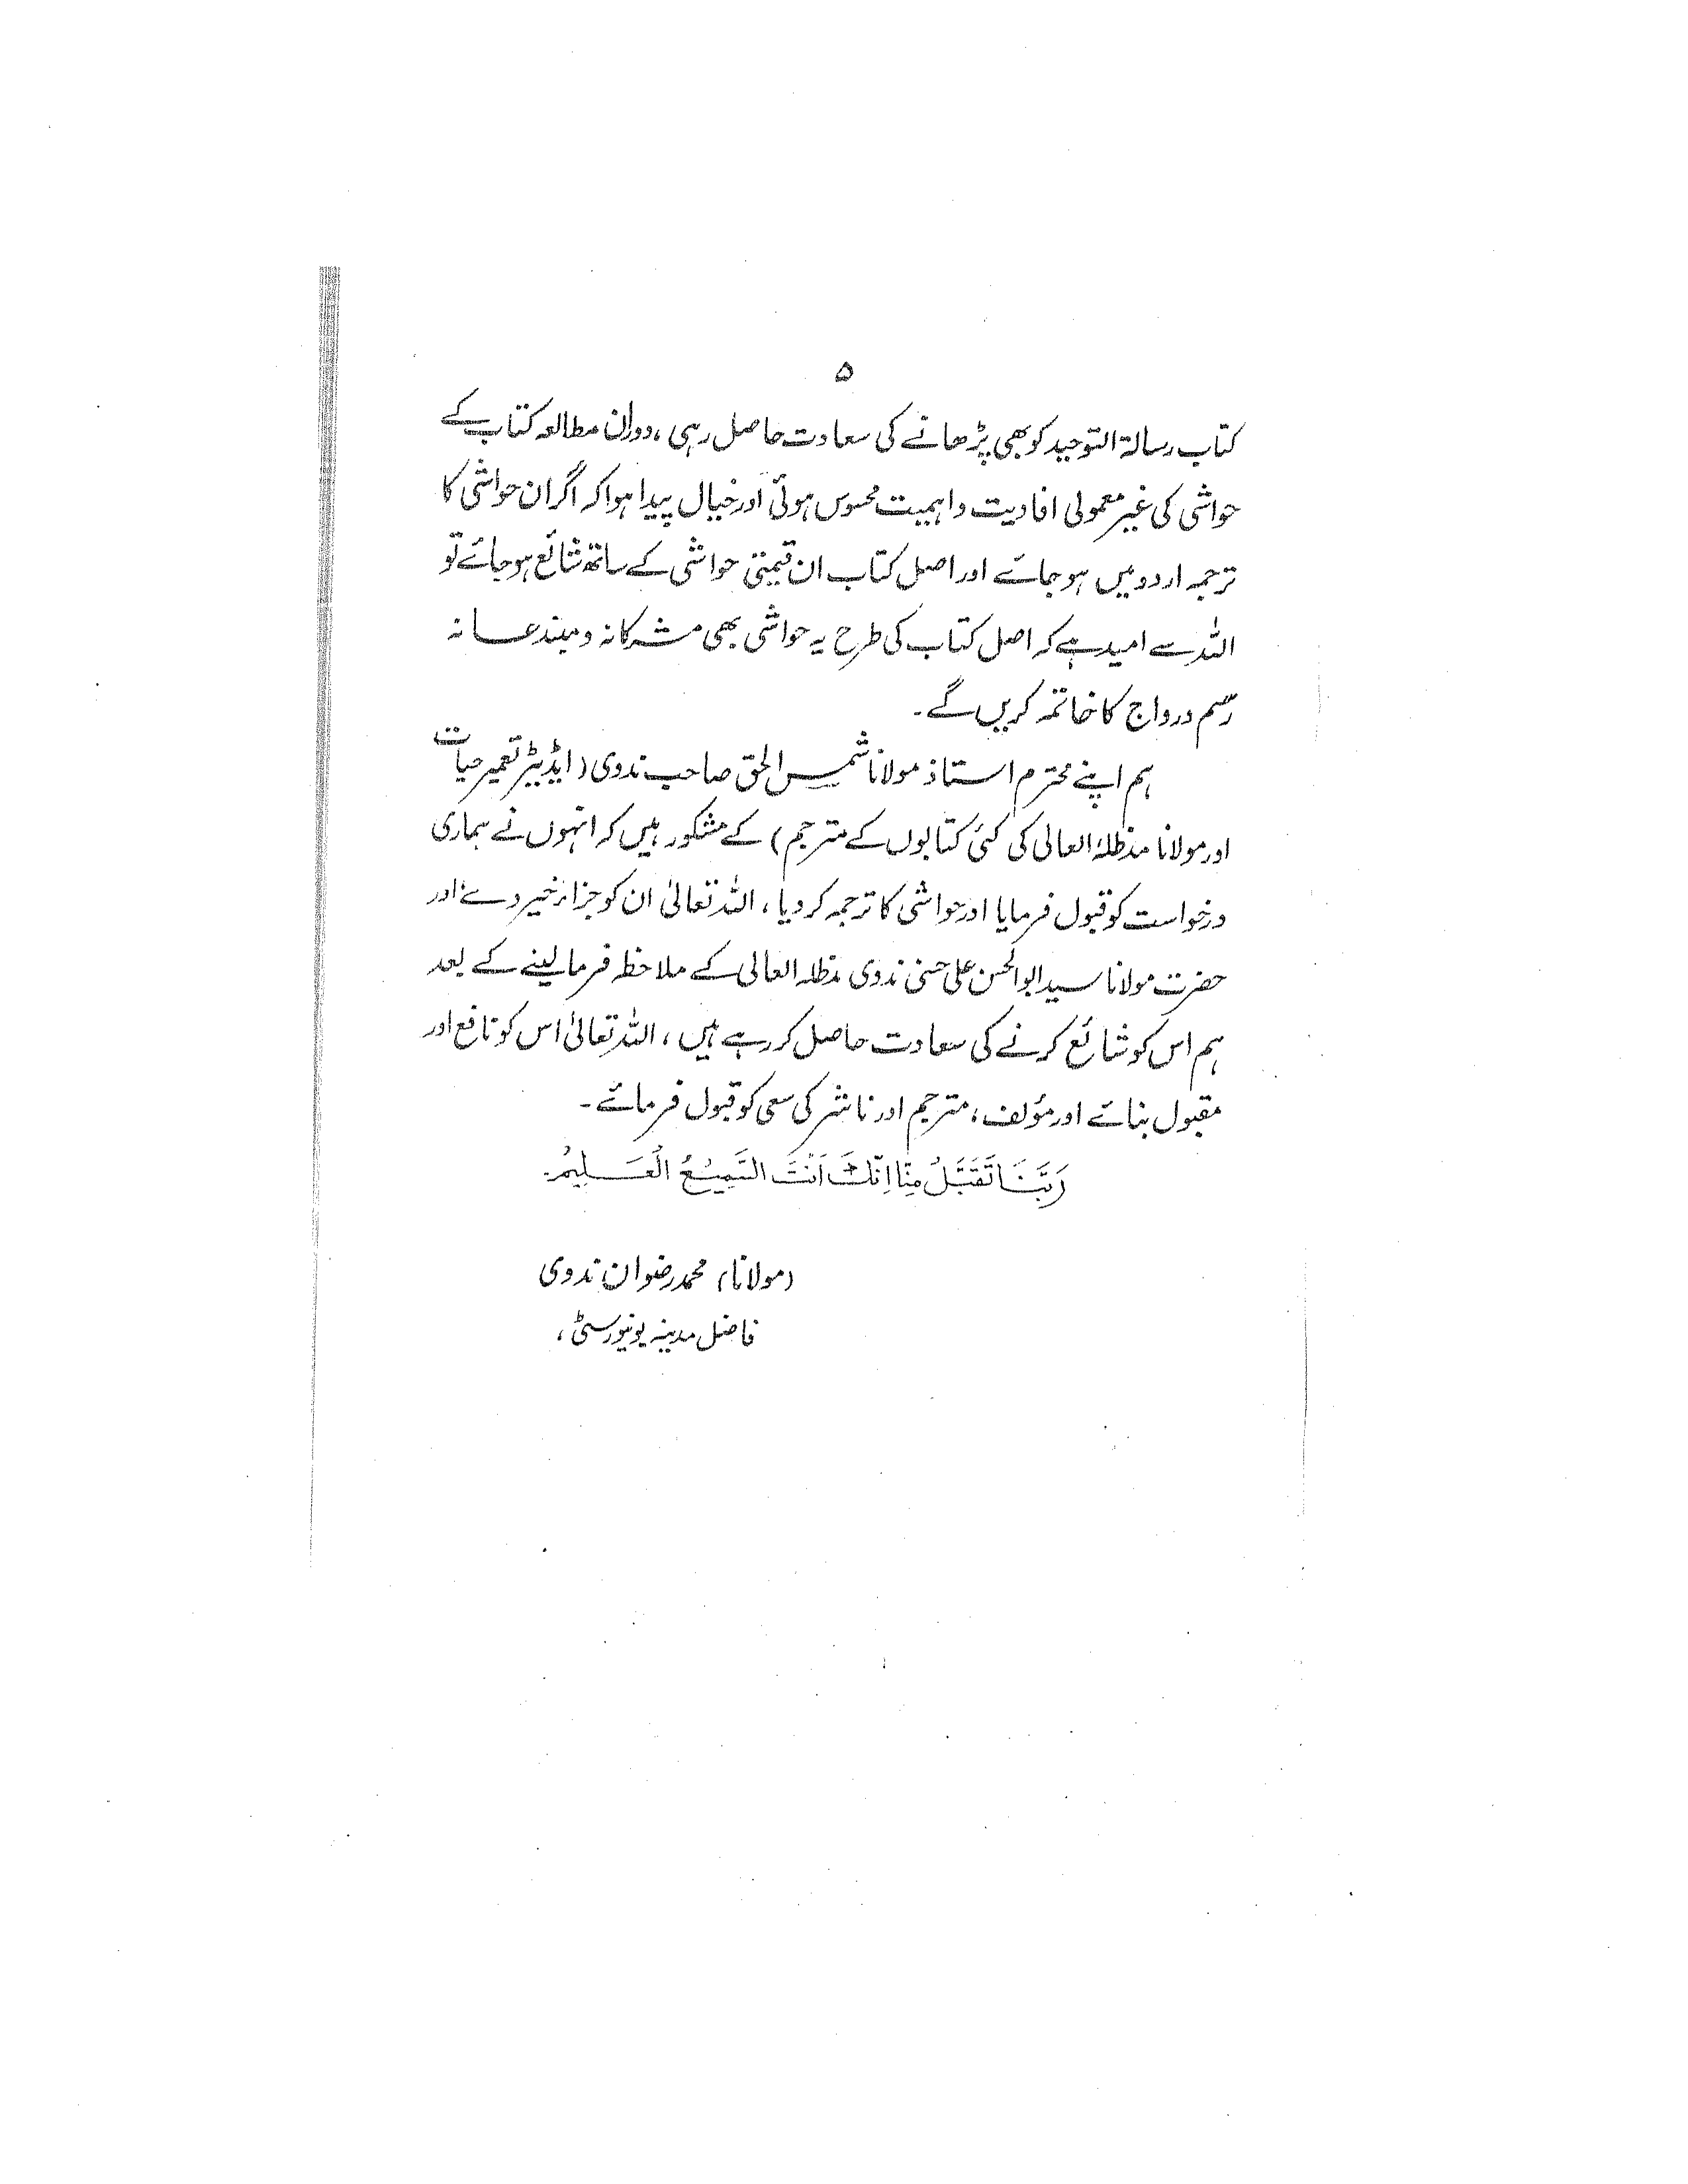 ۵
کتاب رسالۃ التوحید کو بھی پڑھانے کی سعادت حاصل رہی، دوران مطالعہ کتاب کے
حواشی کی غیر معمولی افادیت و اہمیت محسوس ہوئی اور خیال پیدا ہوا کہ اگر ان حواشی کا
ترجمہ اردو میں ہو جائے اور اصل کتاب ان قیمتی حواشی کے ساتھ شائع ہو جائے تو
اللہ سے امید ہے کہ اصل کتاب کی طرح یہ حواشی بھی مشرکانہ و مبتدعانہ
رسم و رواج کا خاتمہ کریں گے۔
ہم اپنے محترم استاذ مولانا شمس الحق صاحب ندوی (ایڈیٹر تعمیر حیات
اور مولانا مدظلہٗ العالی کی کئی کتابوں کے مترجم) کے مشکور ہیں کہ انہوں نے ہماری
درخواست کو قبول فرمایا اور حواشی کا ترجمہ کر دیا، اللہ تعالیٰ ان کو جزاء خیر دے اور
حضرت مولانا سید ابوالحسن علی حسنی ندوی مدظلہ العالی کے ملاحظہ فرما لینے کے بعد
ہم اس کو شائع کرنے کی سعادت حاصل کر رہے ہیں، اللہ تعالیٰ اس کو نافع اور
مقبول بنائے اور مؤلف، مترجم اور ناشر کی سعی کو قبول فرمائے۔
رَبَّنَا تَقَبَّلْ مِنَّا اِنَّكَ اَنْتَ السَّمِيْعُ الْعَلِيْمُ۔
(مولانا) محمد رضوان ندوی
فاضل مدینہ یونیورسٹی،